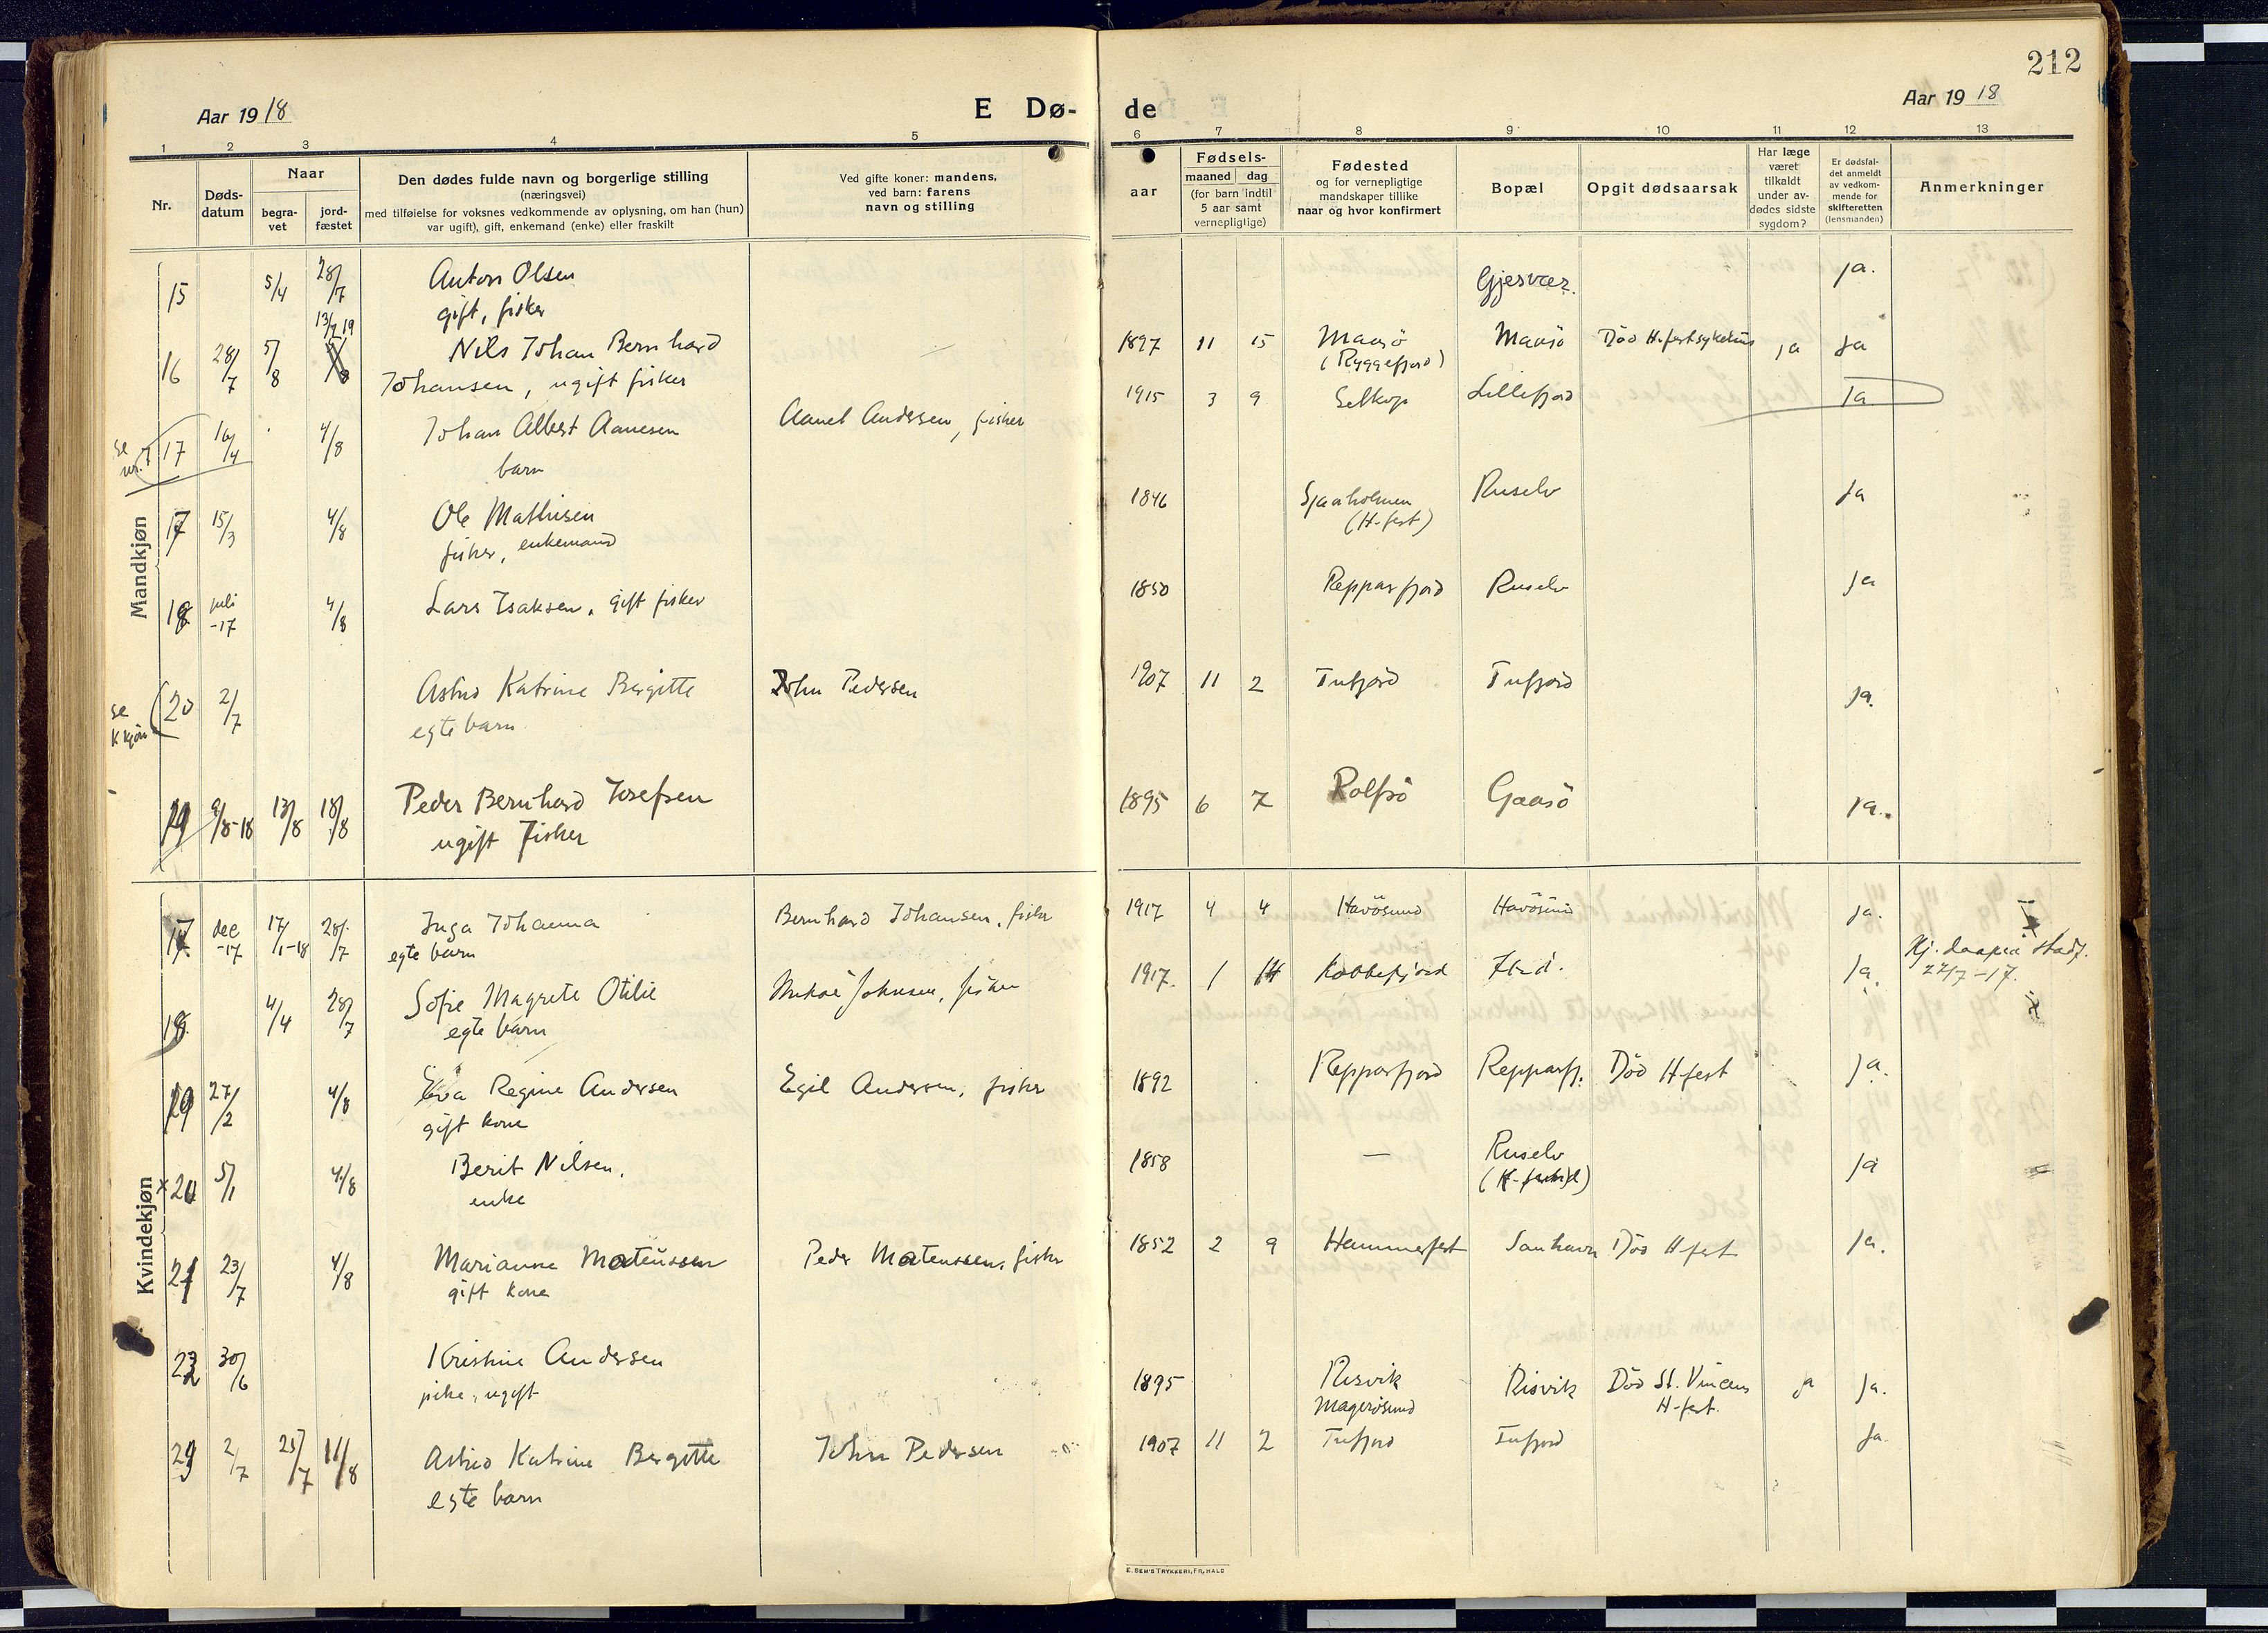 212
Aar 1918
E Dø-
de
Aar 1918
1 2 3 4 5 6 7 8 9 10 11 12 13
Nr.
Døds-
datum
Naar
begra-
vet
jord-
fæstet
Den dødes fulde navn og borgerlige stilling
(næringsvei)
med tilføielse for voksnes vedkommende av oplysning, om han (hun)
var ugift), gift, enkemand (enke) eller fraskilt
Ved gifte koner: mandens,
ved barn: farens
navn og stilling
aar
Fødsels-
maaned dag
(for barn indtil
5 aar samt
vernepligtige)
Fødested
og for vernepligtige
mandskaper tillike
naar og hvor konfirmert
Bopæl
Opgit dødsaarsak
Har læge
været
tilkaldt
under av-
dødes sidste
sygdom?
Er dødsfal-
det anmeldt
av vedkom-
mende for
skifteretten
(lensmanden)
Anmerkninger
Mandkjøn
15 5/4 28/7 Anton Olsen Gjesvær. ja.
gift, fisker
13/7 19
16 28/7 5/8 Nils Johan Bernhard 1897 11 15 Maasö Maasö Död H.festsykehus ja ja
Johansen, ugift fisker (Ryggefjord)
se
17 16/4 4/8 Johan Albert Aanesen Aanet Andersen, fisker 1915 3 9 Selkop Lillefjord Ja
barn
17 15/3 4/8 Ole Mathisen 1846 Sjaaholmen Ruselv Ja
fisker, enkemand (H-fest)
18 juli -17 4/8 Lars Isaksen, gift fisker 1850 Repparfjord Ruselv ja
se
k kjøn
20 2/7 Astrid Katrine Bergitte John Pedersen 1907 11 2 Tufjord Tufjord ja.
egte barn
19 9/8-18 13/8 18/8 Peder Bernhard Josefsen 1895 6 7 Rolfsö Gaasö ja.
ugift fisker
Kvindekjøn
17 dec -17 17/1-18 28/7 Inga Johanna Bernhard Johansen, fisker 1917 4 4 Havösund Havösund ja.
egte barn
18 4/4 28/7 Sofie Magrete Otilie Johnsen, fisker 1917. 1 14 Kobbefjord Ja. Hj. daap stadf.
22/7-17.
egte barn
19 27/2 4/8 Eva Regine Andersen Egil Andersen, fisker 1892 Repparfjord Repparfj. Död H-fest ja.
gift kone
x 20 5/1 4/8 Berit Nilsen, 1858 — Ruselv ja
enke
21 23/7 4/8 Marianne Mateussen Peder Mateussen, fisker 1852 2 9 Hammerfest Sanhavn Död H-fest ja.
gift kone
22 30/6 Kristine Andersen 1895 Risvik Risvik Död St. Vincens ja ja.
pike, ugift Magerösund H-fest.
23 2/7 25/7 11/8 Astrid Katrine Bergitte John Pedersen 1907 11 2 Tufjord Tufjord Ja.
egte barn
E. SEM'S TRYKKERI, FR.HALD